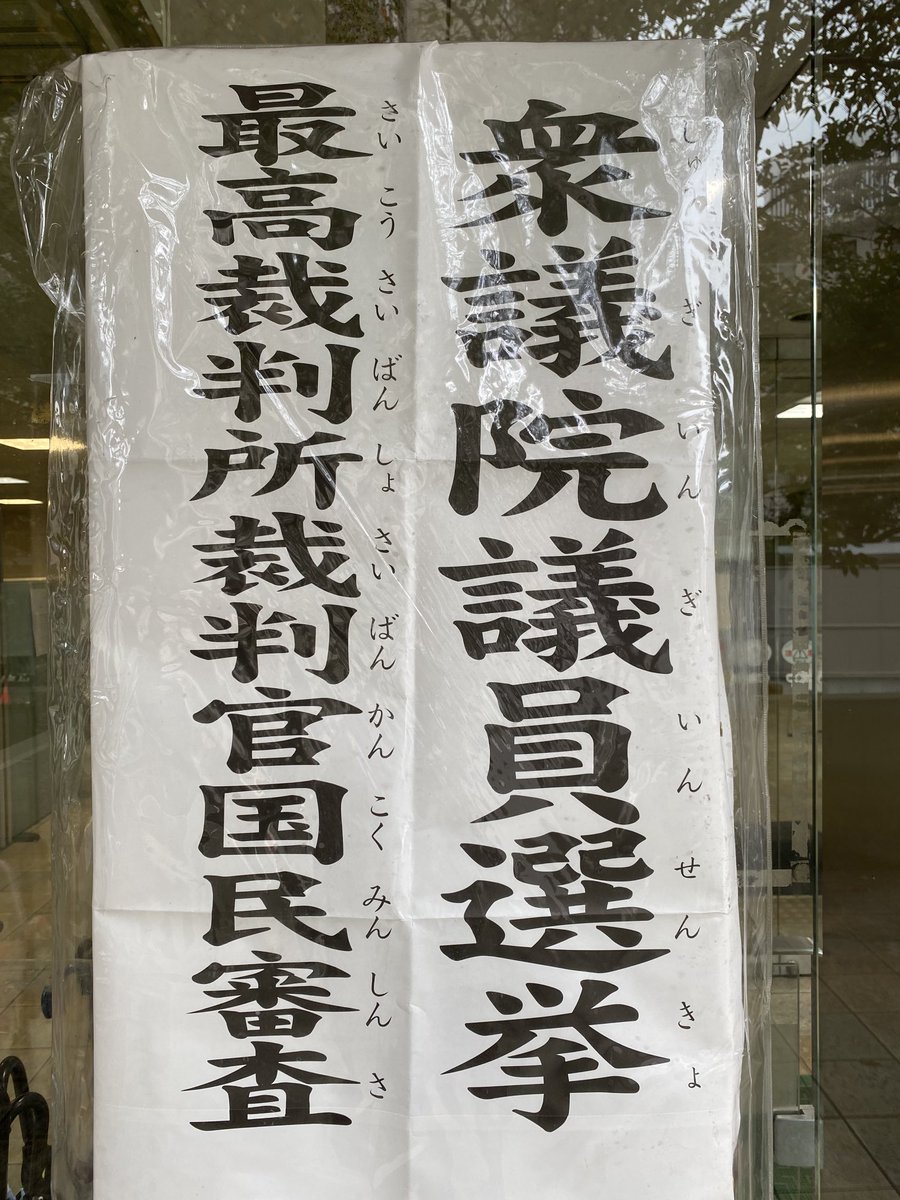 衆議院議員選挙
しゅぎいんぎいんせんきょ
最高裁判所裁判官国民審査
さいこうさいばんしょさいばんかんこくみんしんさ